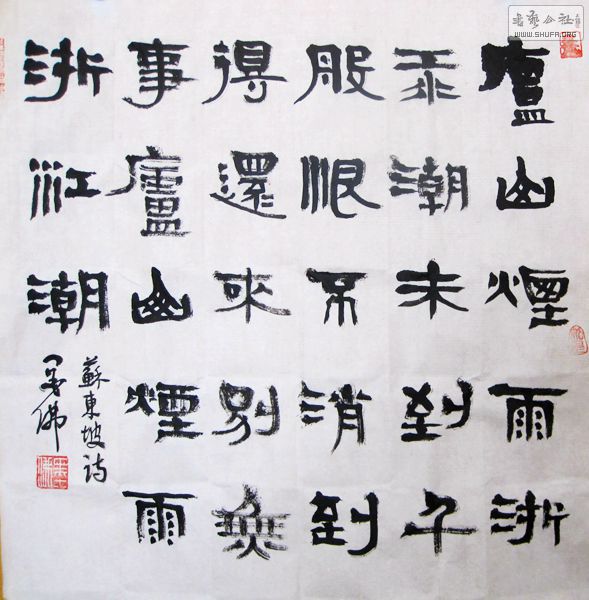 廬山煙雨浙
江潮未到千
般恨不消到
得還來別無
事廬山煙雨
浙江潮
蘇東坡詩
書藝公社
WWW.SHUFA.ORG